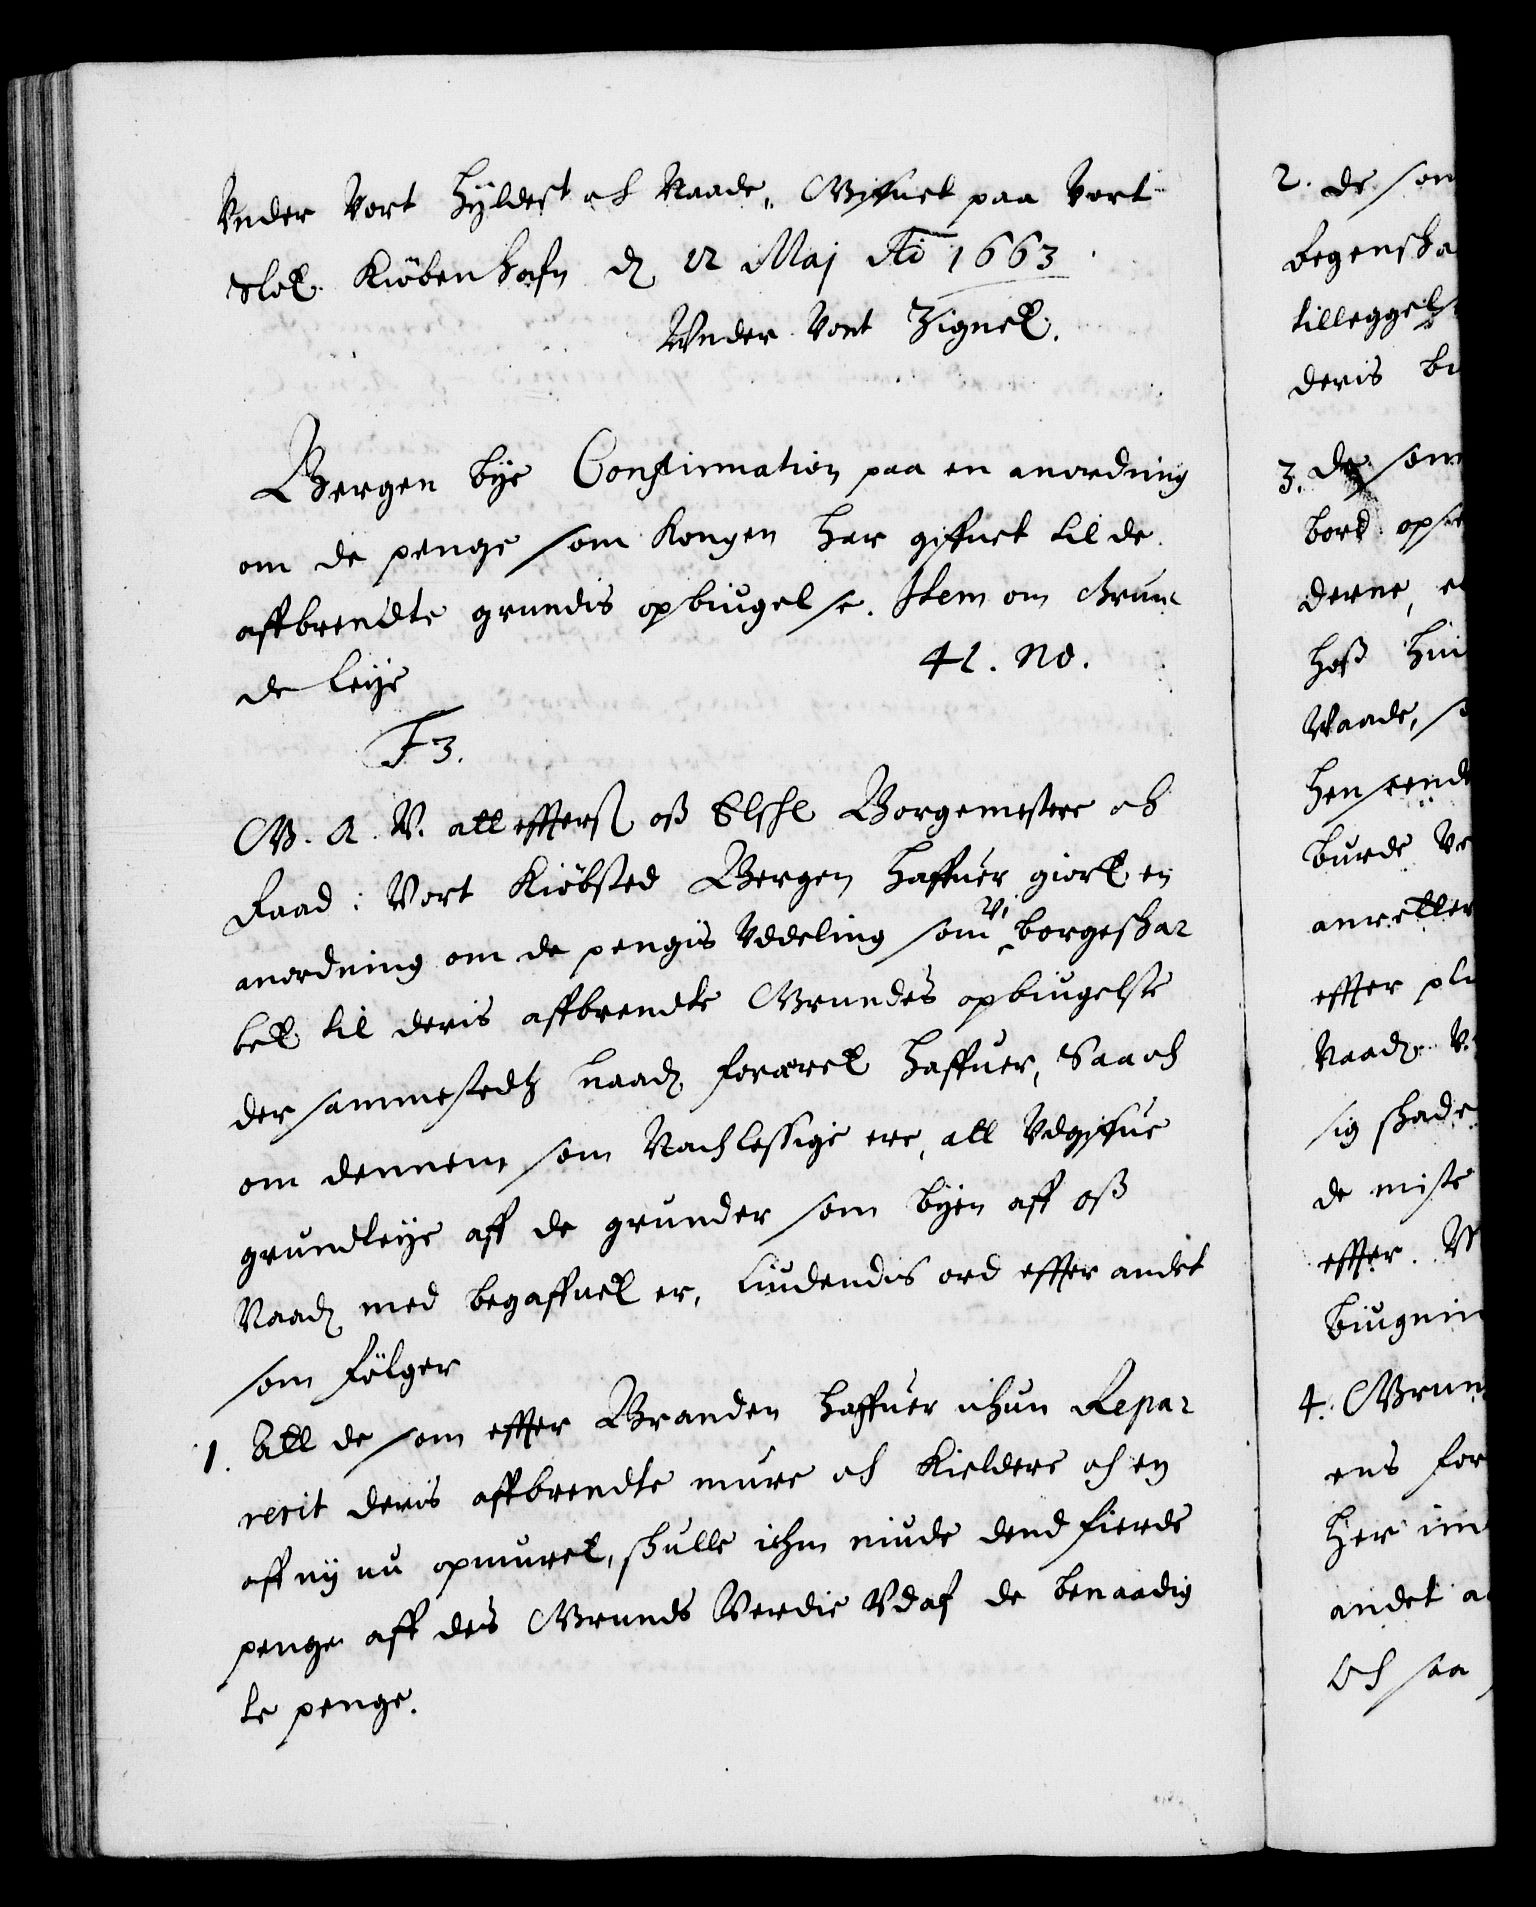 Vnder Vort Hyldest och Naade, Giffuet paa Vort
Slot Kiøbenhafn d 22 Maj Ao 1663.
Vnder Vort Zignet.
Bergen bye Confirmation paa en anordning
om de penge som Kongen har giffuet til de
affbrendte grundis opbiugelse. Item om Grun
de leye
41. No.
F3.
G. A. V. att effters oß Elschl Borgemestere och
Raad i Vort Kiøbsted Bergen haffuer giort en
anordning om de pengis Vddeling som Vi borgeskab
bet til deris affbrendte Grundes opbiugelse
der sammestedtz naadl foræret haffuer, Saa och
om dennem som Nachlessige ere, att Vdgiffue
grundleye aff de grunder som byen aff oß
Naadl med begaffuet er, Liudendis ord effter andet
som følger
1. Att de som effter Branden haffuer ichun Repa
rerit deris affbrendte mure och Kieldere och en
aff ny nu opmuret, skulle ichun niude dend fierde
penge aff des Grunds Verdie Vdaf de benaadig
te penge.
2. de som
tillegges
deris
3. de som
bort
derne,
hoß
Waade,
burde
effter
Naadl V.
sig skade
de miste
effter.
4. Grun
ens for
her
andet
Och saa